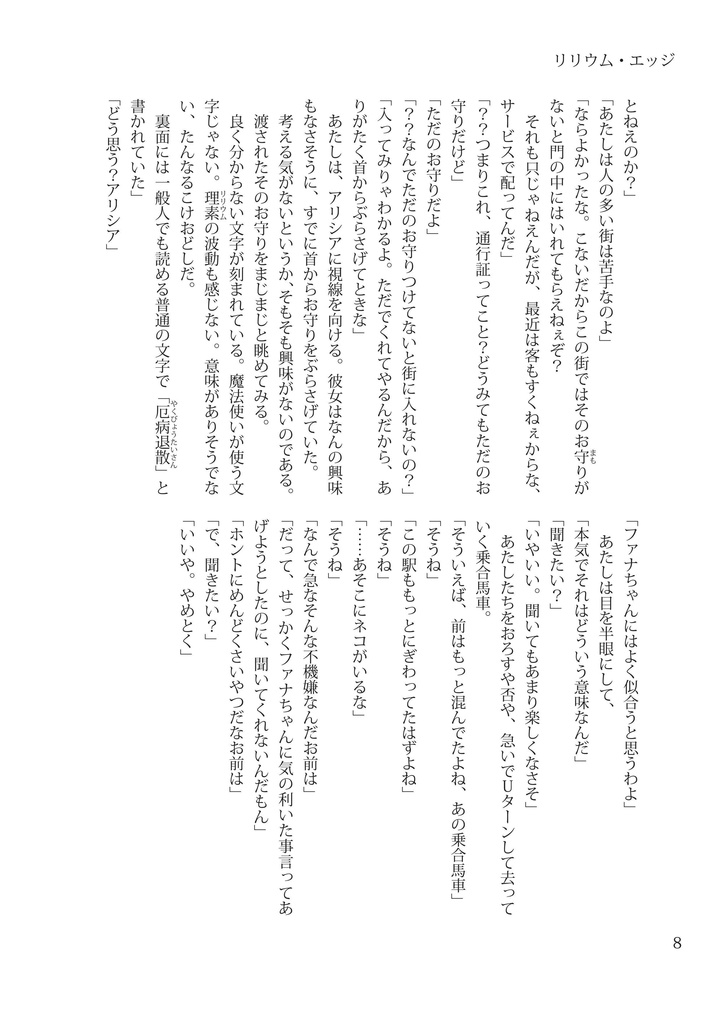 リリウム・エッジ
とねえのか？」
「あたしは人の多い街は苦手なのよ」
「ならよかったな。こないだからこの街ではそのお守りが
ないと門の中にはいれてもらえねぇぞ？
それも只じゃねえんだが、最近は客もすくねぇからな、
サービスで配ってんだ」
「？？つまりこれ、通行証ってこと？どうみてもただのお
守りだけど」
「ただのお守りだよ」
「？？なんでただのお守りつけてないと街に入れないの？」
「入ってみりゃわかるよ。ただでくれてやるんだから、あ
りがたく首からぶらさげてときな」
あたしは、アリシアに視線を向ける。彼女はなんの興味
もなさそうに、すでに首からお守りをぶらさげていた。
考える気がないというか、そもそも興味がないのである。
渡されたそのお守りをまじまじと眺めてみる。
良く分からない文字が刻まれている。魔法使いが使う文
字じゃない。理素の波動も感じない。意味がありそうでな
い、たんなるこけおどしだ。
裏面には一般人でも読める普通の文字で「厄病退散」と
書かれていた」
「どう思う？アリシア」
「ファナちゃんにはよく似合うと思うわよ」
あたしは目を半眼にして、
「本気でそれはどういう意味なんだ」
「聞きたい？」
「いやいい。聞いてもあまり楽しくなさそ」
あたしたちをおろすや否や、急いでＵターンして去って
いく乗合馬車。
「そういえば、前はもっと混んでたよね、あの乗合馬車」
「そうね」
「この駅ももっとにぎわってたはずよね」
「そうね」
「……あそこにネコがいるな」
「そうね」
「なんで急なそんな不機嫌なんだお前は」
「だって、せっかくファナちゃんに気の利いた事言ってあ
げようとしたのに、聞いてくれないんだもん」
「ホントにめんどくさいやつだなお前は」
「で、聞きたい？」
「いいや。やめとく」
8